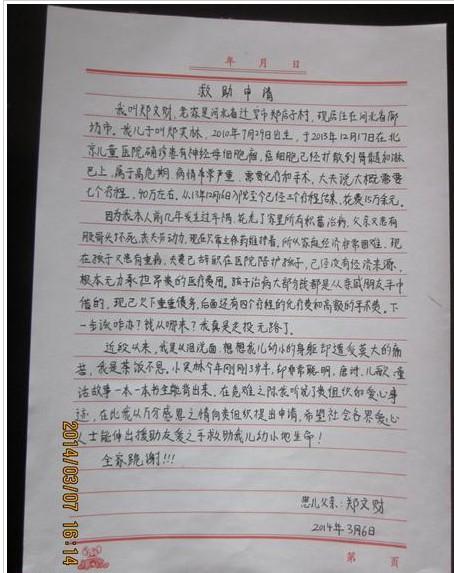 年 月 日
救助申请
我叫郑文财,老家是河北省迁安市郑店子村,现居住在河北省廊
坊市。我儿子叫郑笑林,2010年7月29日出生,于2013年12月17日在北
京儿童医院确诊患有神经母细胞瘤,癌细胞已经扩散到骨髓和淋
巴上,属于高危期,病情非常严重,需要化疗和手术,大夫说大概需要
七个疗程,40万左右。从13年12月6日入院至今已经三个疗程结束,花费15万余元。
因为我本人前几年发生过车祸,花光了家里所有积蓄治病,父亲又患有
股骨头坏死,丧失劳动力,现在只靠土保药维持着,所以家庭经济非常困难,现
在孩子又患有重病,夫妻已辞职在医院陪护孩子,已经没有经济来源,
根本无力承担昂贵的医疗费用。孩子治病大部分钱都是从亲戚朋友手中
借的,现已欠下重重债务,后面还有四个疗程的化疗费和高额的手术费。下
一步该咋办?钱从哪来?我真是走投无路了。
近段以来,我是以泪洗面,想想我儿幼小的身躯却遭受莫大的痛
苦,我是茶饭不思,小笑林今年刚刚3岁半,却非常聪明,唐诗、儿歌、童
话故事一本一本书全能背出来,在危难之际我听说了贵组织的爱心事
迹,在此我以万分感恩之情向贵组织提出申请,希望社会各界爱心
人士能伸出援助友爱之手救助我儿幼小的生命!
全家跪谢!!!
患儿父亲:郑文财
2014年3月6日
第 页
2014/03/07 16:14